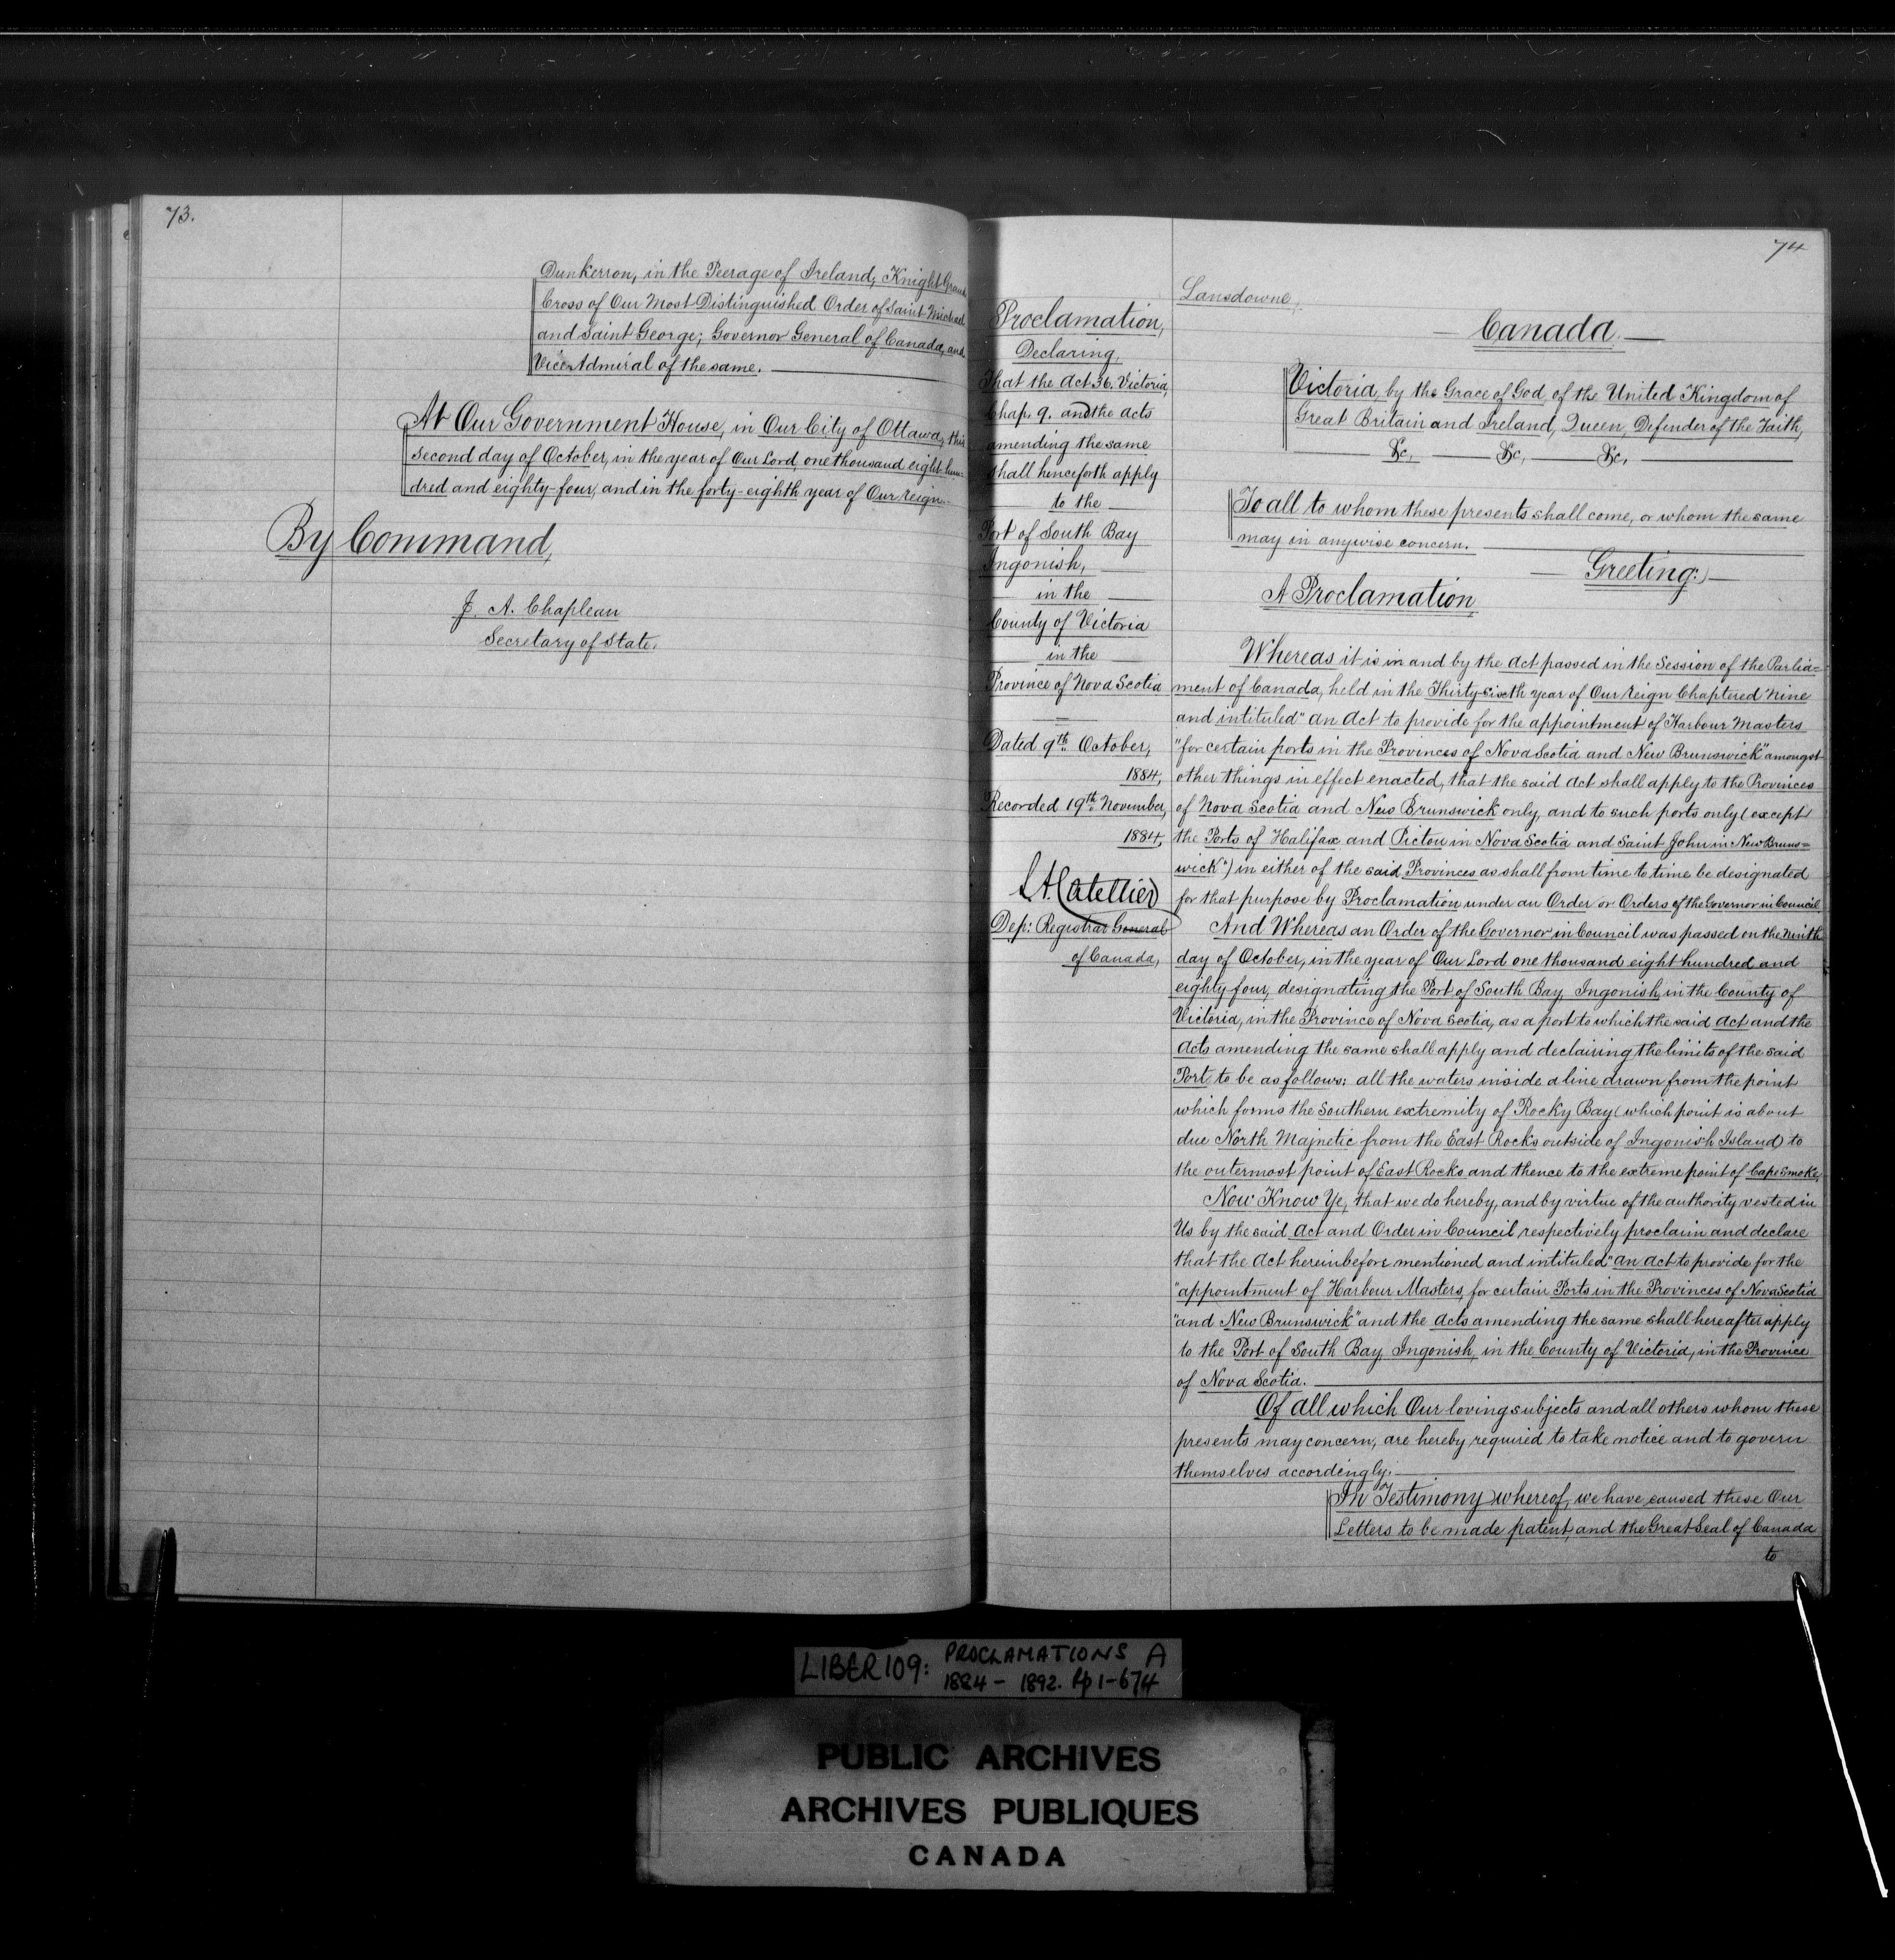 73.
Dunkerron, in the Peerage of Ireland; Knight Grand
Cross of Our Most Distinguished Order of Saint Michael
and Saint George; Governor General of Canada, and
Vice Admiral of the same.
At Our Government House, in Our City of Ottawa, this
second day of October, in the year of Our Lord one thousand eight hun-
dred and eighty-four, and in the forty-eighth year of Our reign.
By Command,
J. A. Chapleau
Secretary of State.
74
Proclamation,
Declaring,
That the Act 36. Victoria,
Chap. 9. and the Acts
amending the same
shall henceforth apply
to the
Port of South Bay
Ingonish,
in the
County of Victoria
in the
Province of Nova Scotia
Dated 9th October,
1884,
Recorded 19th November,
1884,
L. A. Catellier
Dep: Registrar General
of Canada,
Lansdowne,
Canada.
Victoria, by the Grace of God, of the United Kingdom of
Great Britain and Ireland, Queen, Defender of the Faith,
&c, &c, &c,
To all to whom these presents shall come, or whom the same
may in anywise concern.
Greeting:
A Proclamation
Whereas it is in and by the Act passed in the Session of the Parlia=
ment of Canada, held in the Thirty-sixth year of Our reign Chaptured nine
and intituled "An Act to provide for the appointment of Harbour Masters
"for certain ports in the Provinces of Nova Scotia and New Brunswick" amongst
other things in effect enacted, that the said Act shall apply to the Provinces
of Nova Scotia and New Brunswick only, and to such ports only (except
the Ports of Halifax and Pictou in Nova Scotia and Saint John in New Bruns=
wick") in either of the said Provinces as shall from time to time be designated
for that purpose by Proclamation under an Order or Orders of the Governor in Council.
And Whereas an Order of the Governor in Council was passed on the Ninth
day of October, in the year of Our Lord one thousand eight hundred and
eighty four, designating the Port of South Bay, Ingonish, in the County of
Victoria, in the Province of Nova Scotia, as a port to which the said Act and the
Acts amending the same shall apply and declairing the limits of the said
Port to be as follows: all the waters inside a line drawn from the point
which forms the Southern extremity of Rocky Bay (which point is about
due North Majnetic from the East Rocks outside of Ingonish Island) to
the outermost point of East Rocks and thence to the extreme point of Cape Smoke,
Now Know Ye, that we do hereby, and by virtue of the authority vested in
Us by the said Act and Order in Council respectively proclaim and declare
that the Act hereinbefore mentioned and intituled "An Act to provide for the
"appointment of Harbour Masters, for certain Ports in the Provinces of Nova Scotia
"and New Brunswick" and the Acts amending the same shall hereafter apply
to the Port of South Bay, Ingonish, in the County of Victoria, in the Province
of Nova Scotia.
Of all which Our loving subjects and all others whom these
presents may concern, are hereby required to take notice and to govern
themselves accordingly.
In Testimony whereof, we have caused these Our
Letters to be made patent, and the Great Seal of Canada
to
LIBER 109: PROCLAMATIONS A
1884 - 1892. Pp 1-674
PUBLIC ARCHIVES
ARCHIVES PUBLIQUES
CANADA